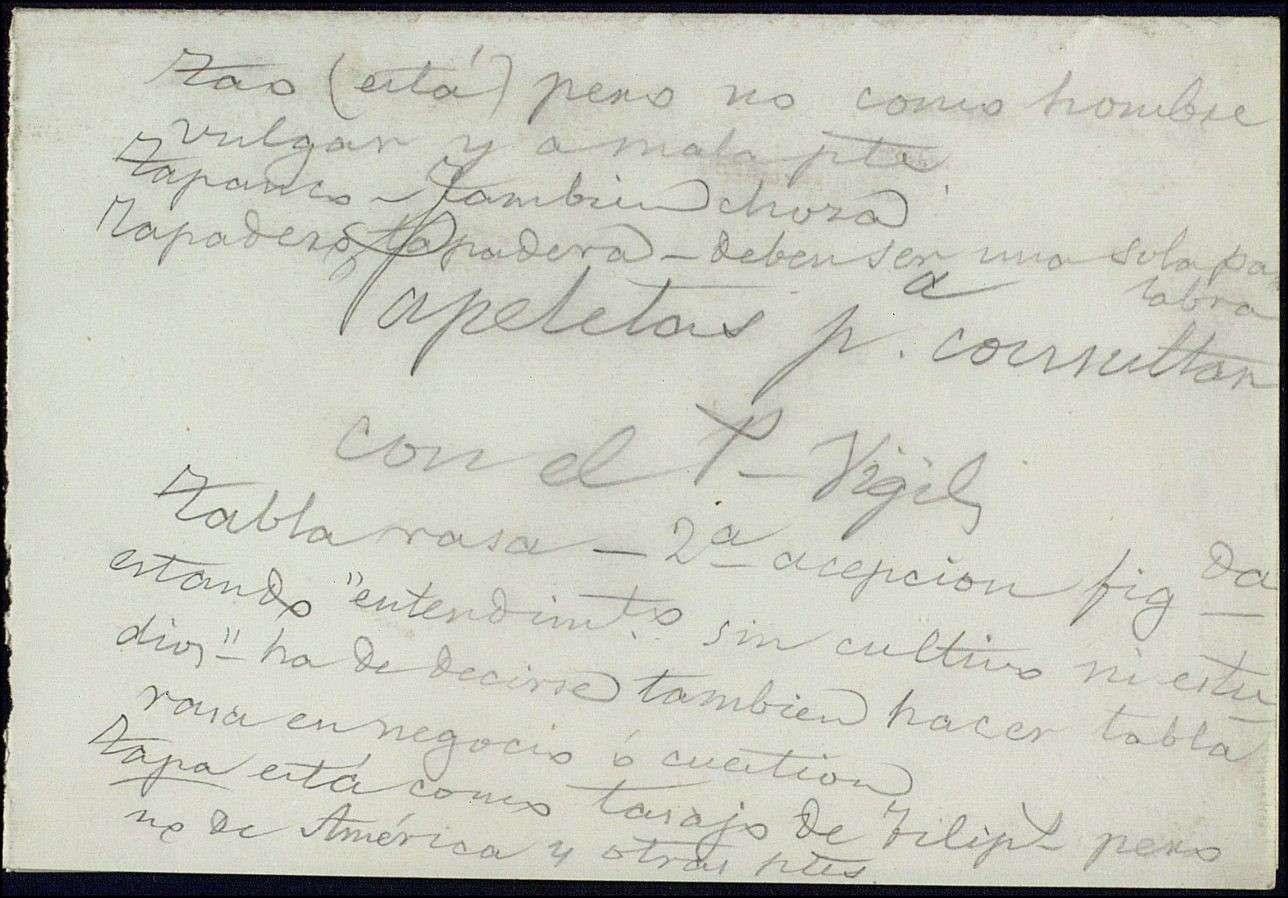 Tao (está) pero no como hombre
vulgar y a mala pte
Tapanco - Tambien choza
Tapadero, tapadera - deben ser una sola pa
labra
Papeletas pa. consultar
con el P- Vigil
Tabla rasa - 2ª acepcion fig da
estando "entendimto. sin cultivo ni estu
dios" - ha de decirse tambien hacer tabla
rasa en negocio ó cuestion
Tapa está como tasajo de Filips pero
no de América y otras ptes